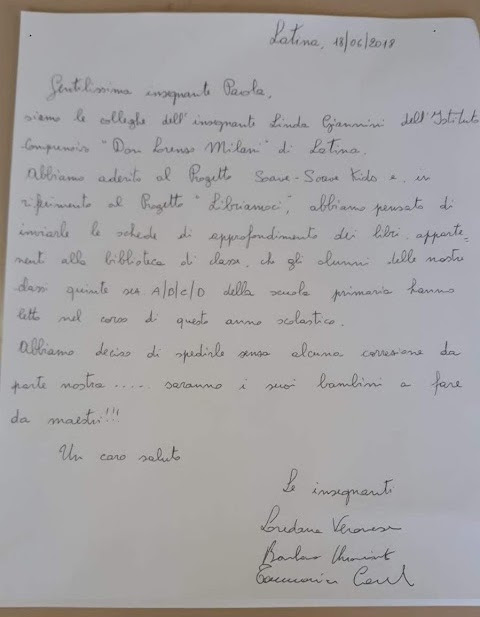 Latina, 18/06/2018
Gentilissima insegnante Paola,
siamo le colleghe dell'insegnante Linda Giannini dell'Istituto
Comprensivo "Don Lorenzo Milani" di Latina.
Abbiamo aderito al Progetto Soave-Soave Kids e, in
riferimento al Progetto "Libriamoci", abbiamo pensato di
inviarle le schede di approfondimento dei libri, apparte-
nenti alla biblioteca di classe, che gli alunni delle nostre
classi quinte sez. A/B/C/D della scuola primaria hanno
letto nel corso di questo anno scolastico.
Abbiamo deciso di spedirle senza alcuna correzione da
parte nostra..... saranno i suoi bambini a fare
da maestri!!!
Un caro saluto
Le insegnanti
Loredana Veronese